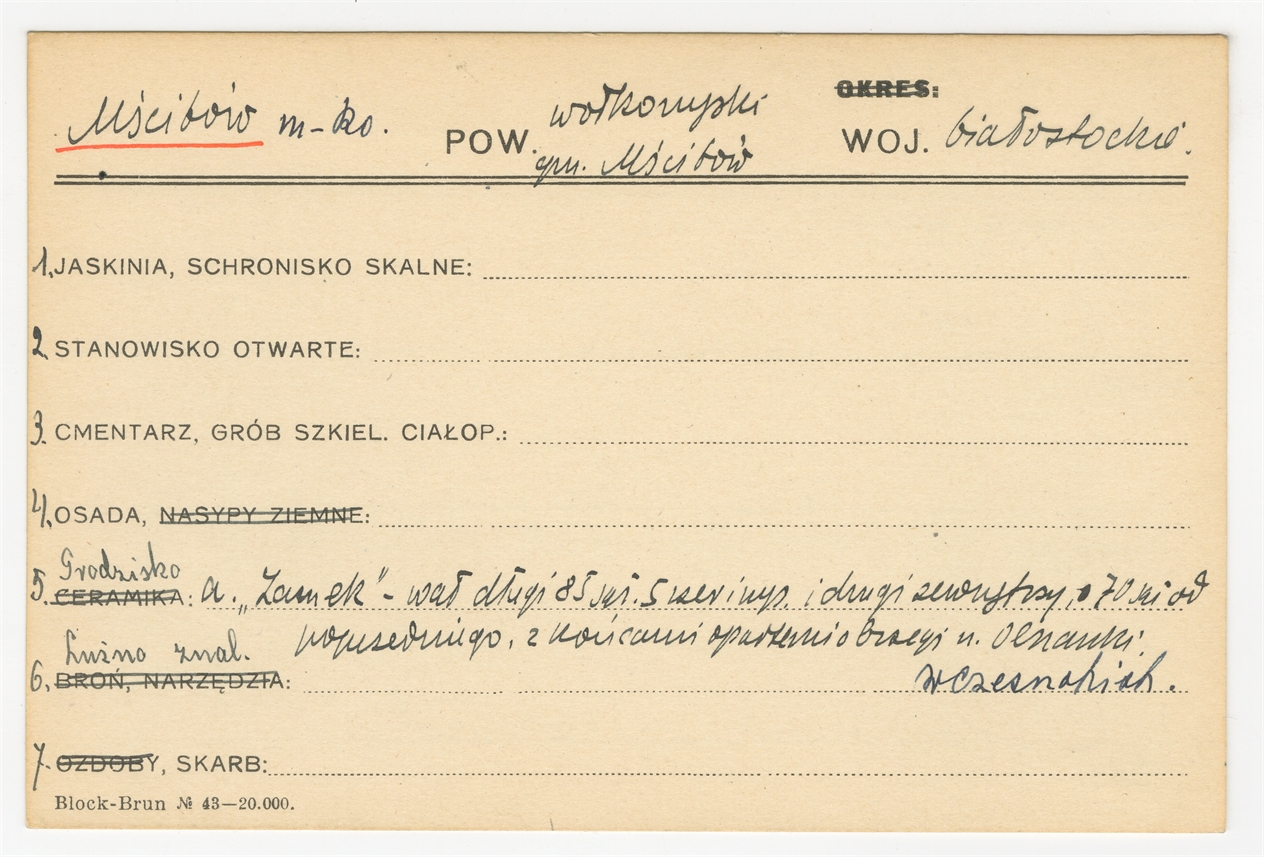 OKRES:
Mścibów m-ko. POW. wołkowyski WOJ. białostockie.
gm. Mścibów
1. JASKINIA, SCHRONISKO SKALNE:
2. STANOWISKO OTWARTE:
3. CMENTARZ, GRÓB SZKIEL. CIAŁOP.:
4. OSADA, NASYPY ZIEMNE:
Grodzisko
5. CERAMIKA: a. „Zamek" - wał długi 85 i drugi zewnętrzny, 70 od
poprzedniego, z końcami opartemi o brzegi
Luźno znal.
6. BROŃ, NARZĘDZIA: wczesnohist.
7. OZDOBY, SKARB:
Block-Brun № 43—20.000.